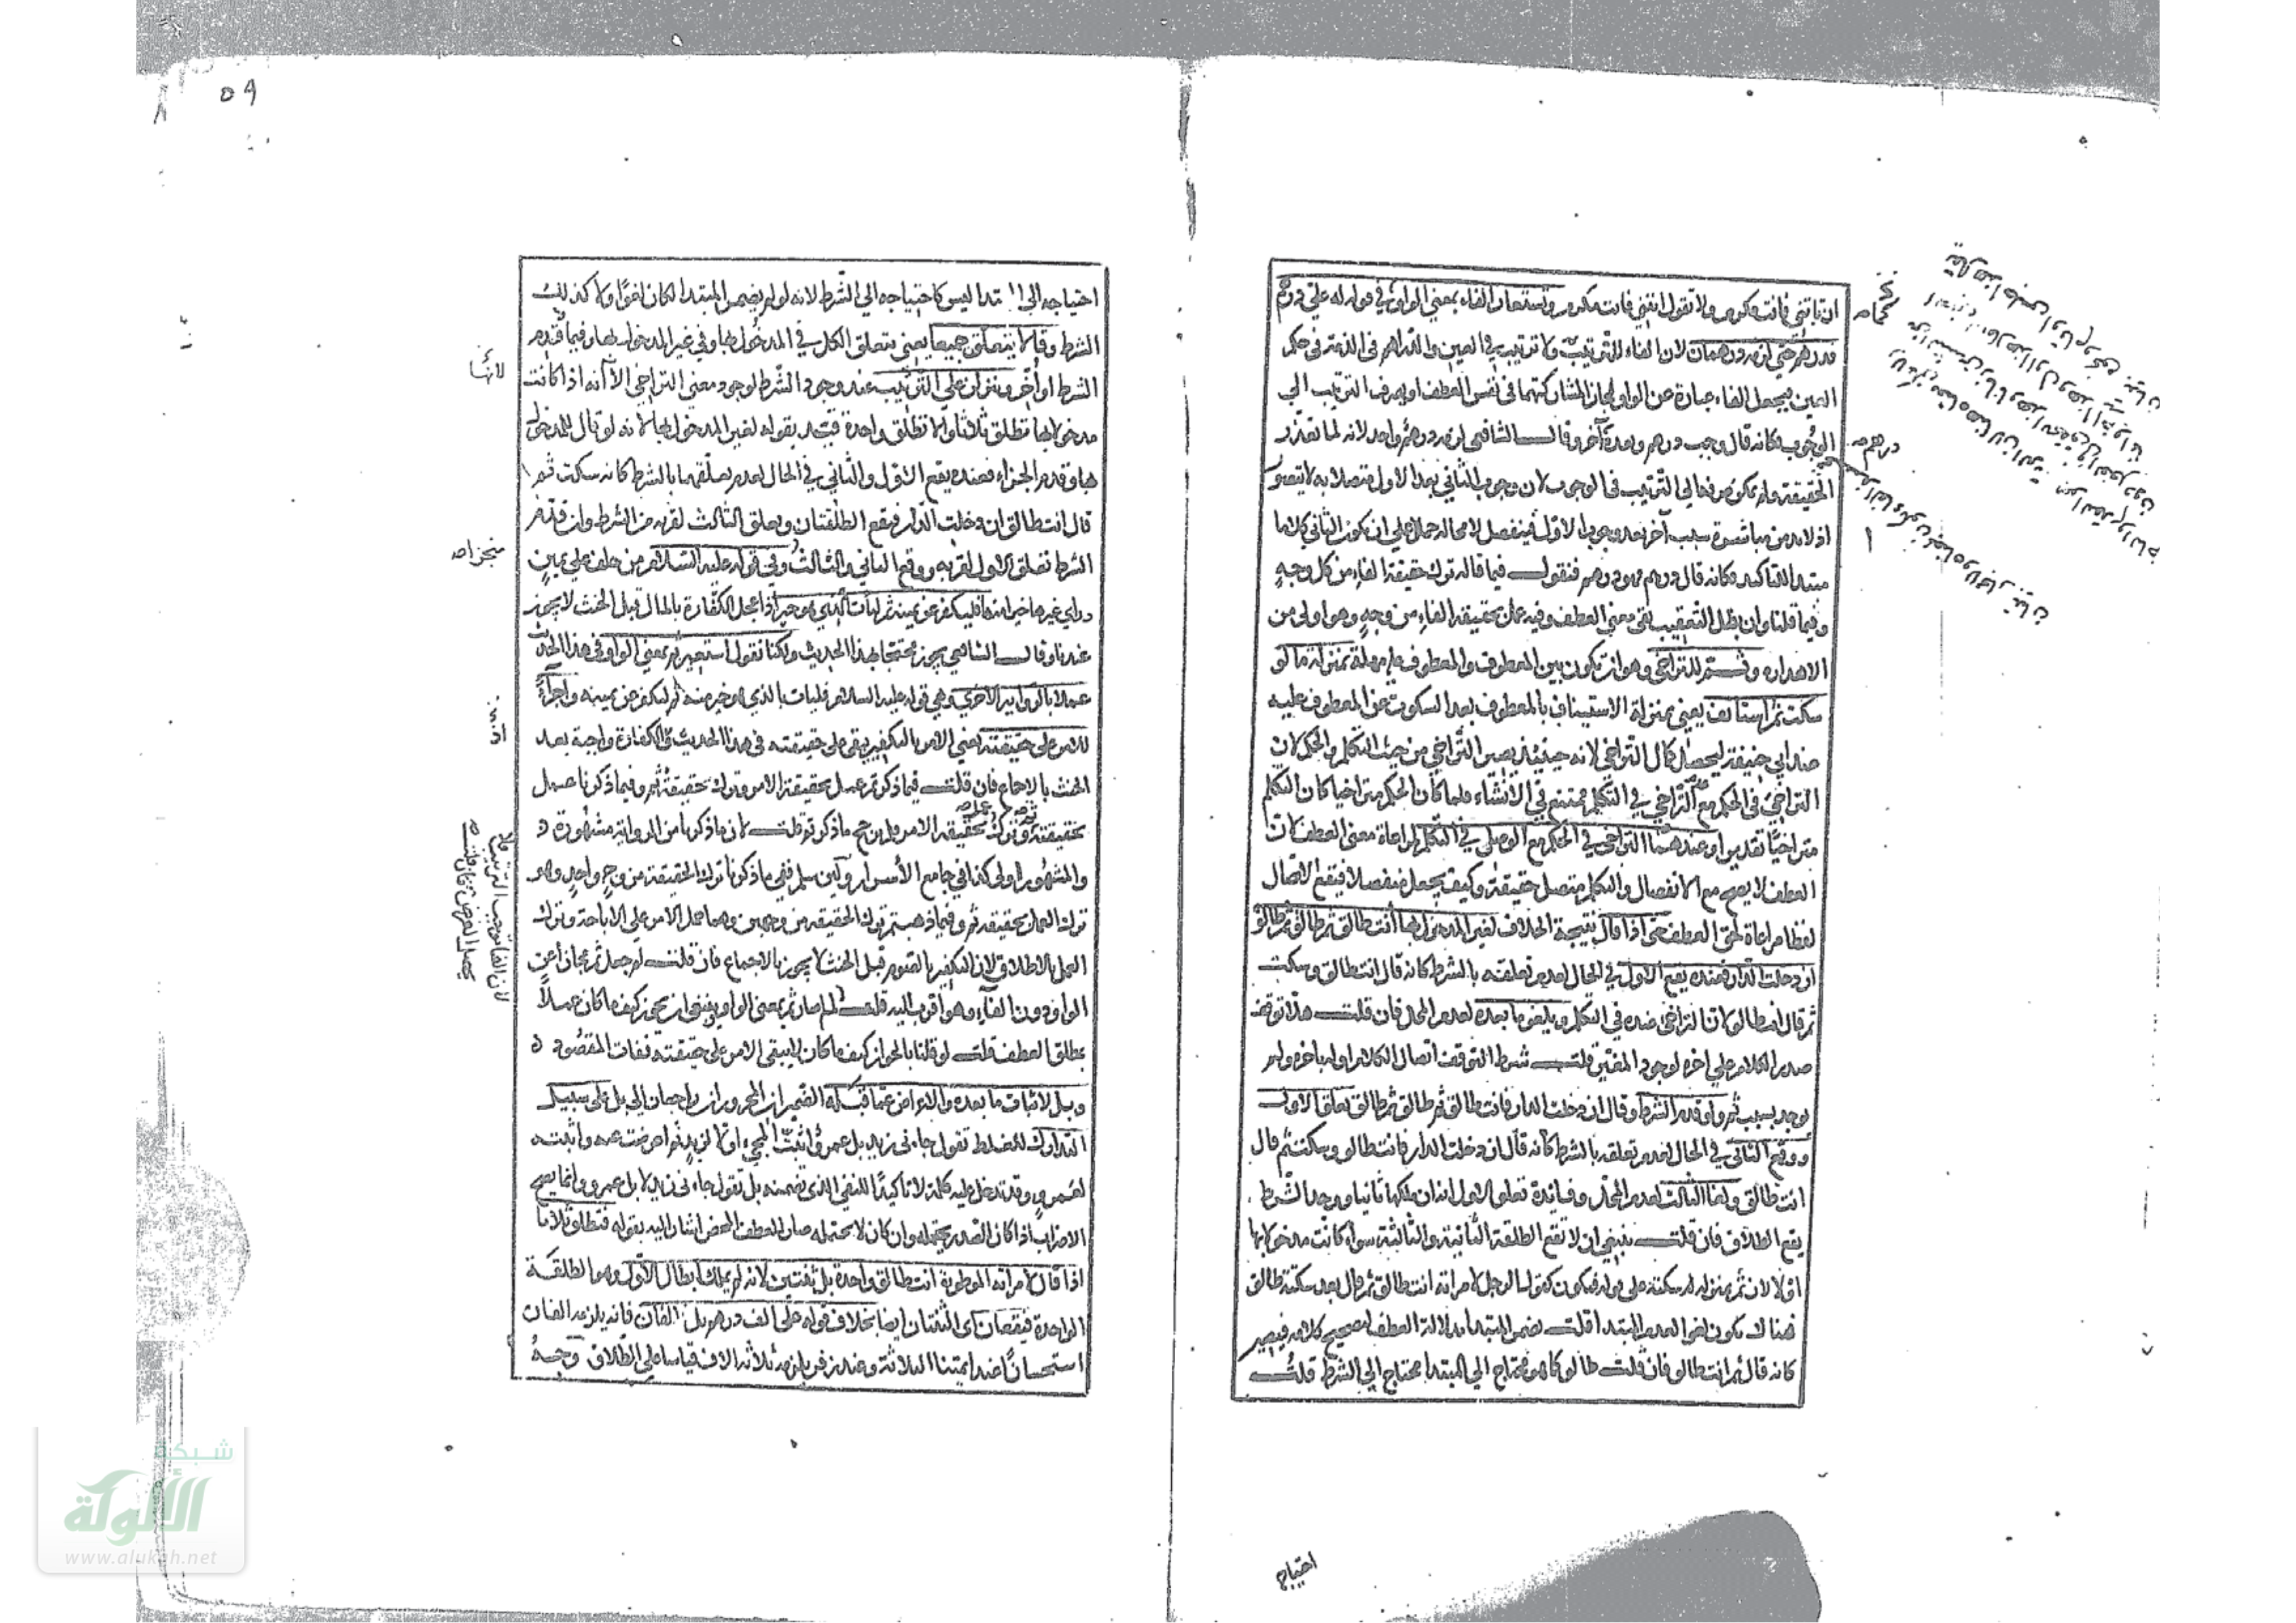 ان تأتني فانت مكرم ولا تقول ائتني فانت مكرم وتستعار الفاء بمعني الواو في قوله له علي درهم
فدرهم حتي لزمه درهمان لان الفاء للترتيب ولا ترتيب في العين والدراهم في الذمة في حكم
العين فيجعل الفاء عبارة عن الواو مجازا لمشاركتهما في نفس العطف او يصرف الترتيب الي
الوجوب فكانه قال وجب درهم وبعده آخر وقال الشافعي لزمه درهم واحد لانه لما تعذر
الحقيقة ولم يمكن صرفها الي الترتيب في الوجوب لان وجوب الثاني بعد الاول متصلا به لا يتصور
اذ لابد من مباشرة سبب آخر بعد وجوب الاول فينفصل لا محالة حمل علي ان يكون الثاني كلاما
مبتدا للتاكيد فكانه قال درهم فهو درهم فنقول فيما قاله ترك حقيقة الفاء من كل وجهٍ
وفيما قلنا وان بطل التعقيب بقي معني العطف وفيه عمل بحقيقة الفاء من وجهٍ وهو اولي من
الاهدار وثم للتراخي وهو ان يكون بين المعطوف والمعطوف عليه مهلة بمنزلة ما لو
سكت ثم استانف يعني بمنزلة الاستيناف بالمعطوف بعد السكوت عن المعطوف عليه
عند ابي حنيفة ليحصل كمال التراخي لانه حينئذ يصير التراخي من حيث التكلم والحكم لان
التراخي في الحكم مع التراخي في التكلم ممتنع في الانشاء فلما كان الحكم متراخيا كان التكلم
متراخيًا تقديرا وعندهما التراخي في الحكم مع الوصل في التكلم لمراعاة معني العطف لان
العطف لا يصح مع الانفصال والتكلم متصل حقيقة وكيف يجعل منفصلا فيقع الاتصال
لفظا مراعاة لحق العطف حتي اذا قال نتيجة الخلاف لغير المدخول بها انت طالق ثم طالق ثم طالق
ان دخلت الدار فعنده يقع الاول في الحال لعدم تعلقه بالشرط كانه قال انت طالق وسكت
ثم قال انت طالق لان التراخي عنده في التكلم ويلغو ما بعده لعدم المحل فان قلت هلا توقف
صدر الكلام علي اخره لوجود المغير قلت شرط التوقف اتصال الكلام اوله باخره ولم
يوجد بسبب ثم ولو قدم الشرط وقال ان دخلت الدار فانت طالق ثم طالق ثم طالق تعلق الاول
ووقع الثاني في الحال لعدم تعلقه بالشرط كانه قال ان دخلت الدار فانت طالق وسكت ثم قال
انت طالق ولغا الثالث لعدم المحل وفائدة تعلق الاول انه ان ملكها ثانيا ووجد الشرط
يقع الطلاق فان قلت ينبغي ان لا تقع الطلقة الثانية والثالثة سواء كانت مدخولا بها
او لا لان ثم بمنزلة سكتة علي قوله فيكون كقول الرجل لامراته انت طالق ثم قال بعد سكتة طالق
هناك يكون لغوا لعدم المبتدا قلت يضمر المبتدا بدلالة العطف لتصحيح كلامه فيصير
كانه قال ثم انت طالق فان قلت طالق كما هو محتاج الي المبتدا محتاج الي الشرط قلت
كماه
درهم صح
احتياجه
٥٩
احتياجه الي المبتدا ليس كاحتياجه الي الشرط لانه لو لم يضمر المبتدا لكان لغوًا ولا كذلك
الشرط وقالا يتعلق جميعا يعني يتعلق الكل في المدخول بها وفي غير المدخول بها وفيما قدم
الشرط او اخّر وينزلن علي الترتيب عند وجود الشرط لوجود معني التراخي الا انه اذا كانت
مدخولا بها تطلق ثلاثا والا تطلق واحدة قيد بقوله لغير المدخول بها لانه لو قال للمدخول
بها وقدم الجزاء فعنده يقع الاول والثاني في الحال لعدم تعلقهما بالشرط كانه سكت ثم
قال انت طالق ان دخلت الدار فيقع الطلقتان ويعلق الثالث لقربه من الشرط وان قدم
الشرط تعلق الاول لقربه ووقع الثاني والثالث وفي قوله عليه السلام من حلف علي يمين
وراي غيرها خيرا منها فليكفر عن يمينه ثم ليات بالذي هو خير اذا عجل الكفارة بالمال قبل الحنث لا يجوز
عندنا وقال الشافعي يجوز محتجا بهذا الحديث ولكنا نقول استعير ثم بمعني الواو في هذا الحديث
عملا بالرواية الاخري وهي قوله عليه السلام فليات بالذي هو خير منه ثم ليكفر عن يمينه واجراءً
للامر علي حقيقته يعني الامر بالتكفير يبقي علي حقيقته في هذا الحديث لان الكفارة واجبة بعد
الحنث بالاجماع فان قلت فيما ذكرتم عمل بحقيقة الامر وترك حقيقة ثم وفيما ذكرنا عمل
بحقيقة ثم وترك بحقيقة الامر فلم رجح ما ذكرتم قلت لان ما ذكرنا من الرواية مشهورة
والمشهور اولي كذا في جامع الأسرار ولئن سلم ففي ما ذكرنا ترك الحقيقة من وجه واحدٍ وهو
ترك العمل بحقيقة ثم وفيما ذهبتم ترك الحقيقة من وجهين وهما حمل الامر علي الاباحة وترك
العمل بالاطلاق لان التكفير بالصوم قبل الحنث لا يجوز بالاجماع فان قلت لم جعل ثم مجازا عن
الواو دون الفاء وهو اقرب اليه قلت لما صار ثم بمعني الواو ينبغي ان يجوز كيف ما كان عملاً
بمطلق العطف قلت لو قلنا بالجواز كيف ما كان لا يبقي الامر علي حقيقته ففات المقصود
وبل لاثبات ما بعده والاعراض عما قبله الضميران المجروران راجعان الي بل علي سبيل
التدارك للغلط تقول جاءني زيد بل عمرو اثبتّ المجيء اولا لزيدٍ ثم اعرضت عنه واثبته
لعمرو وقد تدخل عليه كلمة لا تاكيدًا للنفي الذي تضمنه بل تقول جاءني زيد لا بل عمرو وانما يصح
الاضراب اذا كان الصدر يحتمله وان كان لا يحتمله صار للعطف المحض اشار اليه بقوله فتطلق ثلاثا
اذا قال لامراته الموطوءة انت طالق واحدة بل ثنتين لانه لم يملك ابطال الاول وهو الطلقة
الواحدة فيقعان اي الثنتان ايضا بخلاف قوله علي الف درهم بل الفان فانه يلزمه الفان
استحسانًا عند ايمتنا الثلاثة وعند زفر يلزمه ثلاثة الاف قياسا علي الطلاق وجه
لانها
منجزاه
لان الفا توجب الترتيب
يحصل الغرض
شبكة
الألوكة
www.alukah.net